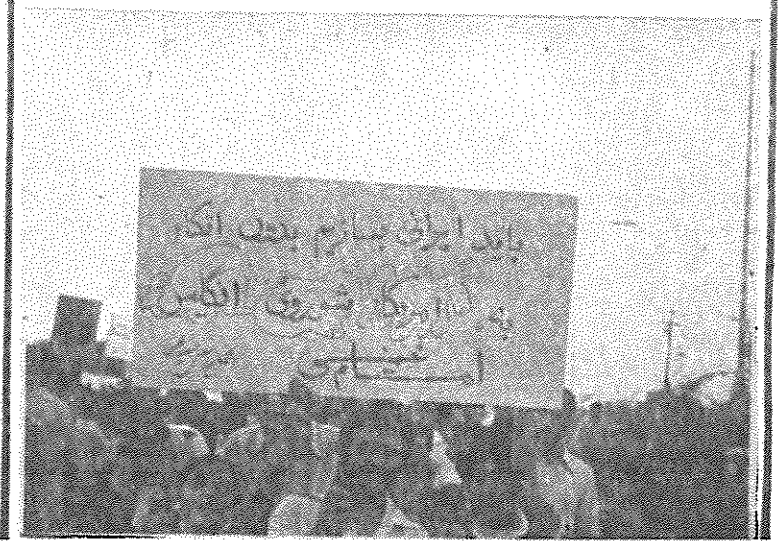 باید ایرانی بسازیم بدون اتکاء
به آمریکا شوروی انگلیس
امام خمینی